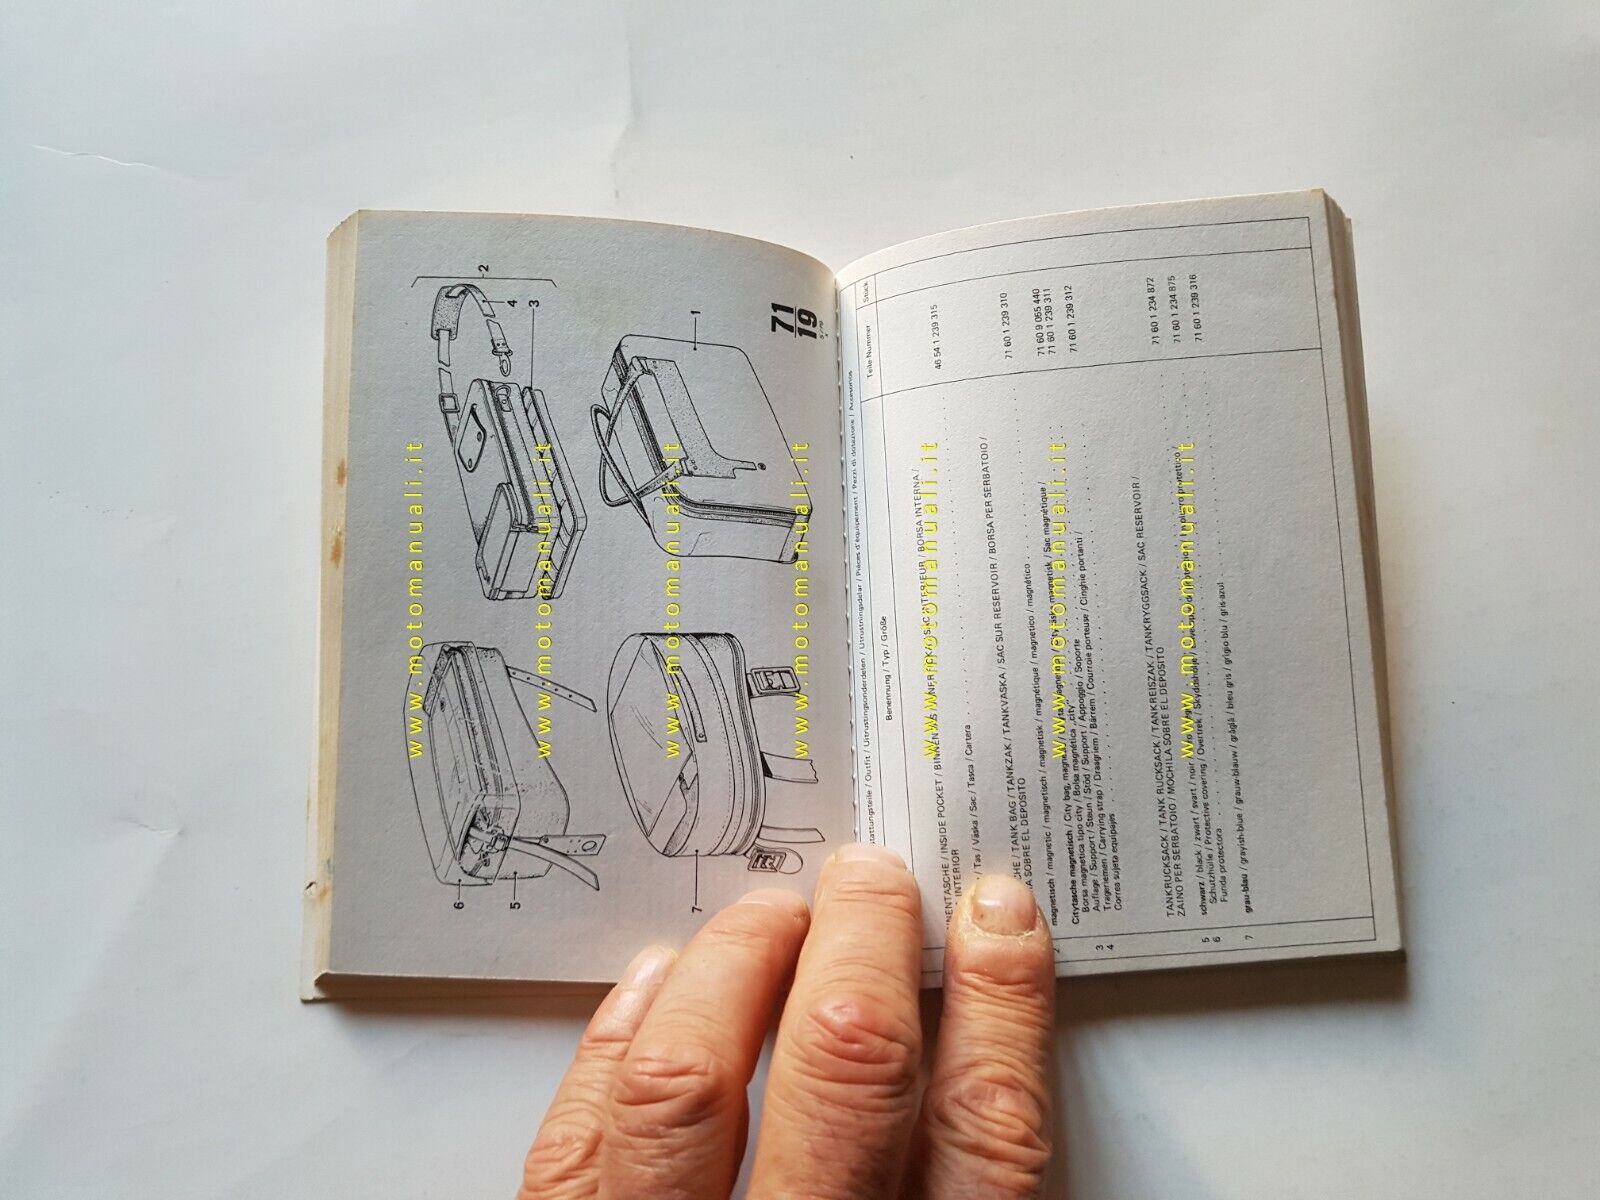 71
19
5/79
1
2
3
4
5
6
7
/ Outfit / Uitrustingsonderdelen / Utrustningsdelar / Pièces d'équipement / Pezzi di dotazione / Accesorios
Benennung / Typ / Größe
Teile-Nummer
Stück
/ INSIDE POCKET / INTERIEUR / BORSA INTERNA /
INTERIOR
/ Tas / Väska / Sac / Tasca / Cartera 46 54 1 239 315
/ TANK BAG / TANKZAK / TANKVÄSKA / SAC SUR RESERVOIR / BORSA PER SERBATOIO /
SOBRE EL DEPOSITO
magnetisch / magnetic / magnetisch / magnetisk / magnétique / magnetico / magnético 71 60 1 239 310
2 Citytasche magnetisch / City bag, magnetic / magnetisk / Sac magnétique /
Borsa magnetica tipo city / Bolsa magnética „city" 71 60 9 055 440
3 Auflage / Support / Steun / Stöd / Support / Appoggio / Soporte 71 60 1 239 311
4 Trageriemen / Carrying strap / Draagriem / Bärrem / Courroie porteuse / Cinghie portanti /
Correa sujeta equipajes 71 60 1 239 312
TANKRUCKSACK / TANK RUCKSACK / TANKREISZAK / TANKRYGGSACK / SAC RESERVOIR /
ZAINO PER SERBATOIO / MOCHILA SOBRE EL DEPOSITO
5 schwarz / black / zwart / svart / noir / 71 60 1 234 872
6 Schutzhülle / Protective covering / Overtrek / Skyddshölje / protettivo /
Funda protectora 71 60 1 234 875
7 grau-blau / grayish-blue / grauw-blauw / gråglå / bleu gris / grigio blu / gris azul 71 60 1 239 316
www.motomanuali.it
www.motomanuali.it
www.motomanuali.it
www.motomanuali.it
www.motomanuali.it
www.motomanuali.it
www.motomanuali.it